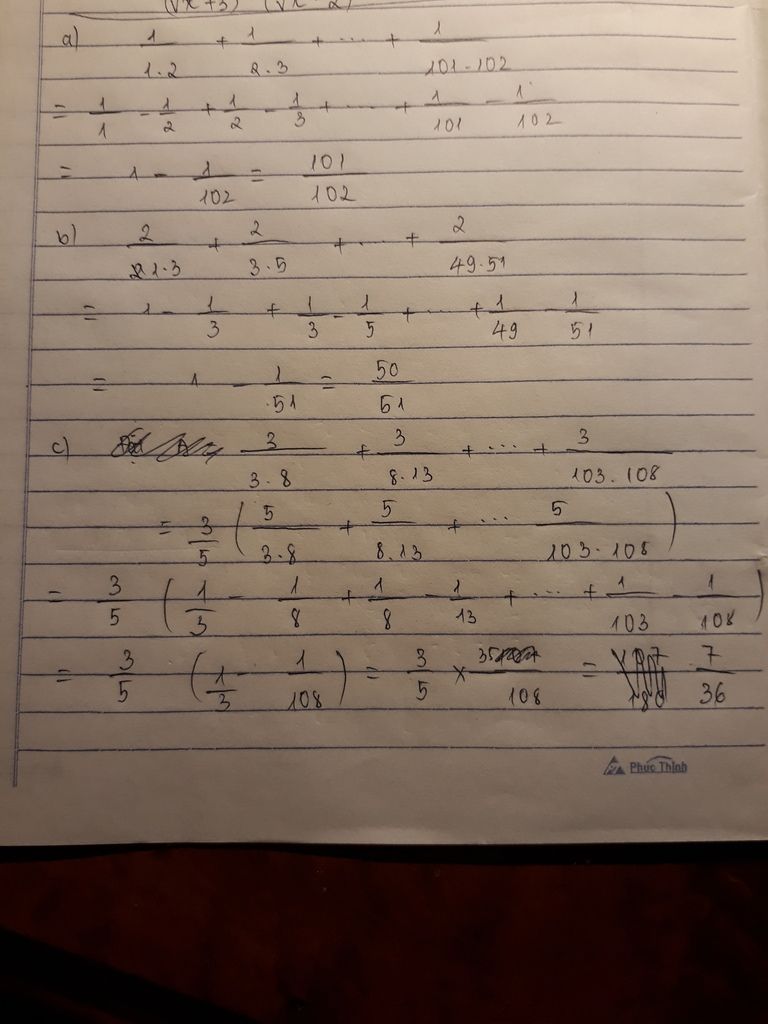 (√x+3) (√x-2)
a) 1/1.2 + 1/2.3 + ..... + 1/101.102
= 1/1 - 1/2 + 1/2 - 1/3 + ..... + 1/101 - 1/102
= 1 - 1/102 = 101/102
b) 2/1.3 + 2/3.5 + ..... + 2/49.51
= 1 - 1/3 + 1/3 - 1/5 + ..... + 1/49 - 1/51
= 1 - 1/51 = 50/51
c) 3/3.8 + 3/8.13 + ... + 3/103.108
= 3/5 (5/3.8 + 5/8.13 + ... 5/103.108)
= 3/5 (1/3 - 1/8 + 1/8 - 1/13 + ... + 1/103 - 1/108)
= 3/5 (1/3 - 1/108) = 3/5 × 35/108 = 7/36
Phúc Thịnh